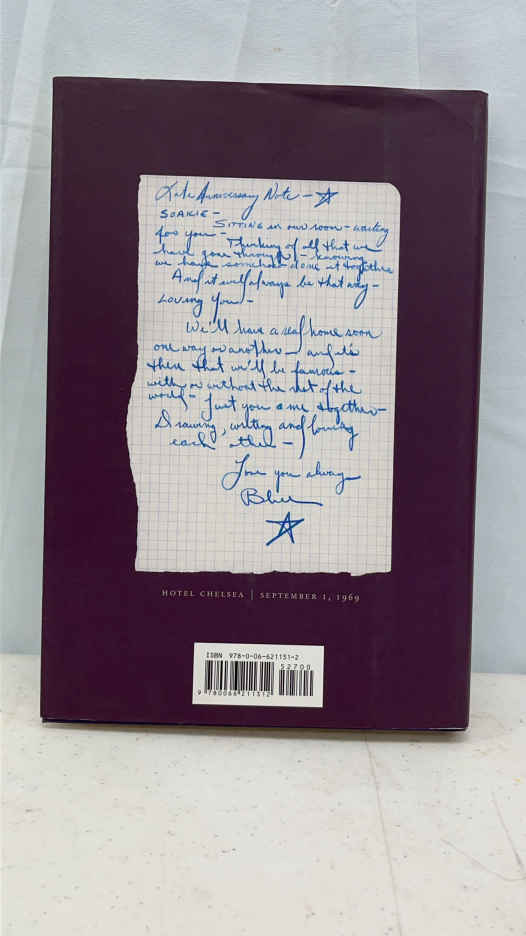 Late Anniversary Note - ☆
SOAKIE -
SITTING in our room - waiting
for you - Thinking of all that we
have gone through - knowing
we have somehow done it together
And it will always be that way -
LOVING You -
We'll have a real home soon
one way or another - and it's
there that we'll be famous -
with or without the rest of the
world - Just you & me together -
Drawing, writing and loving
each other -
Love you always
Blue
☆
HOTEL CHELSEA | SEPTEMBER 1, 1969
ISBN 978-0-06-621131-2
52700
9 780066 211312